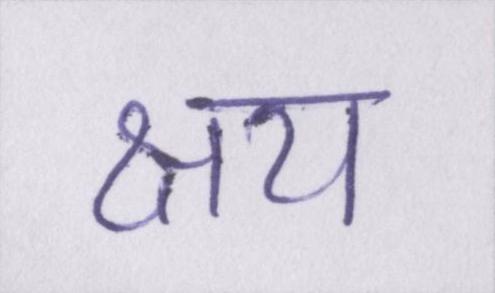 क्षय